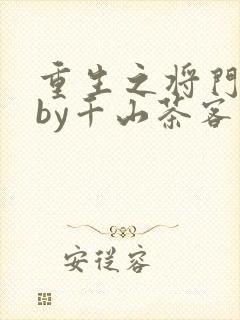 重生之将門
by千山茶客
安従容